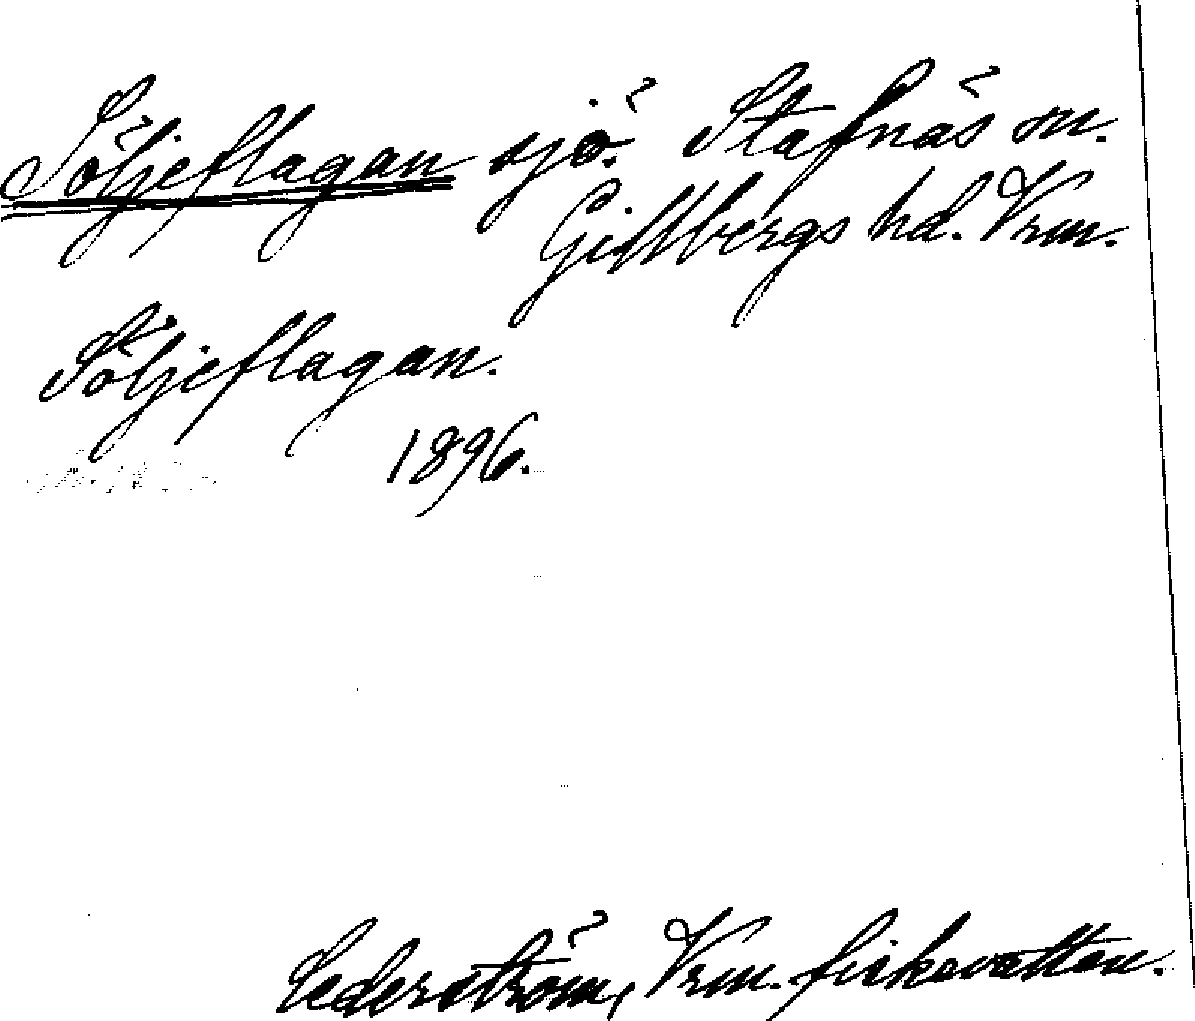 Söljeflagan sjö. Stafnäs sn.
Gillbergs hd. Vrm.
Söljeflagan.
1896.
Cederström, Vrm. fiskevatten.